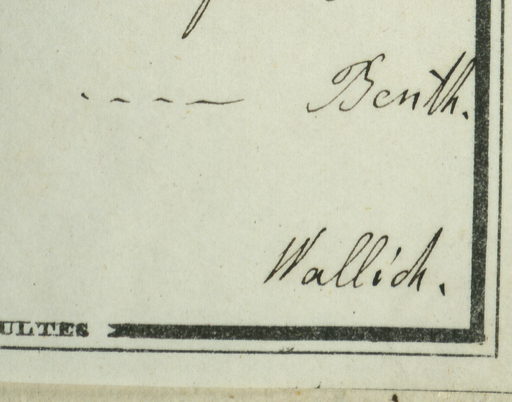 ---- Benth.
Wallich.
ULTES